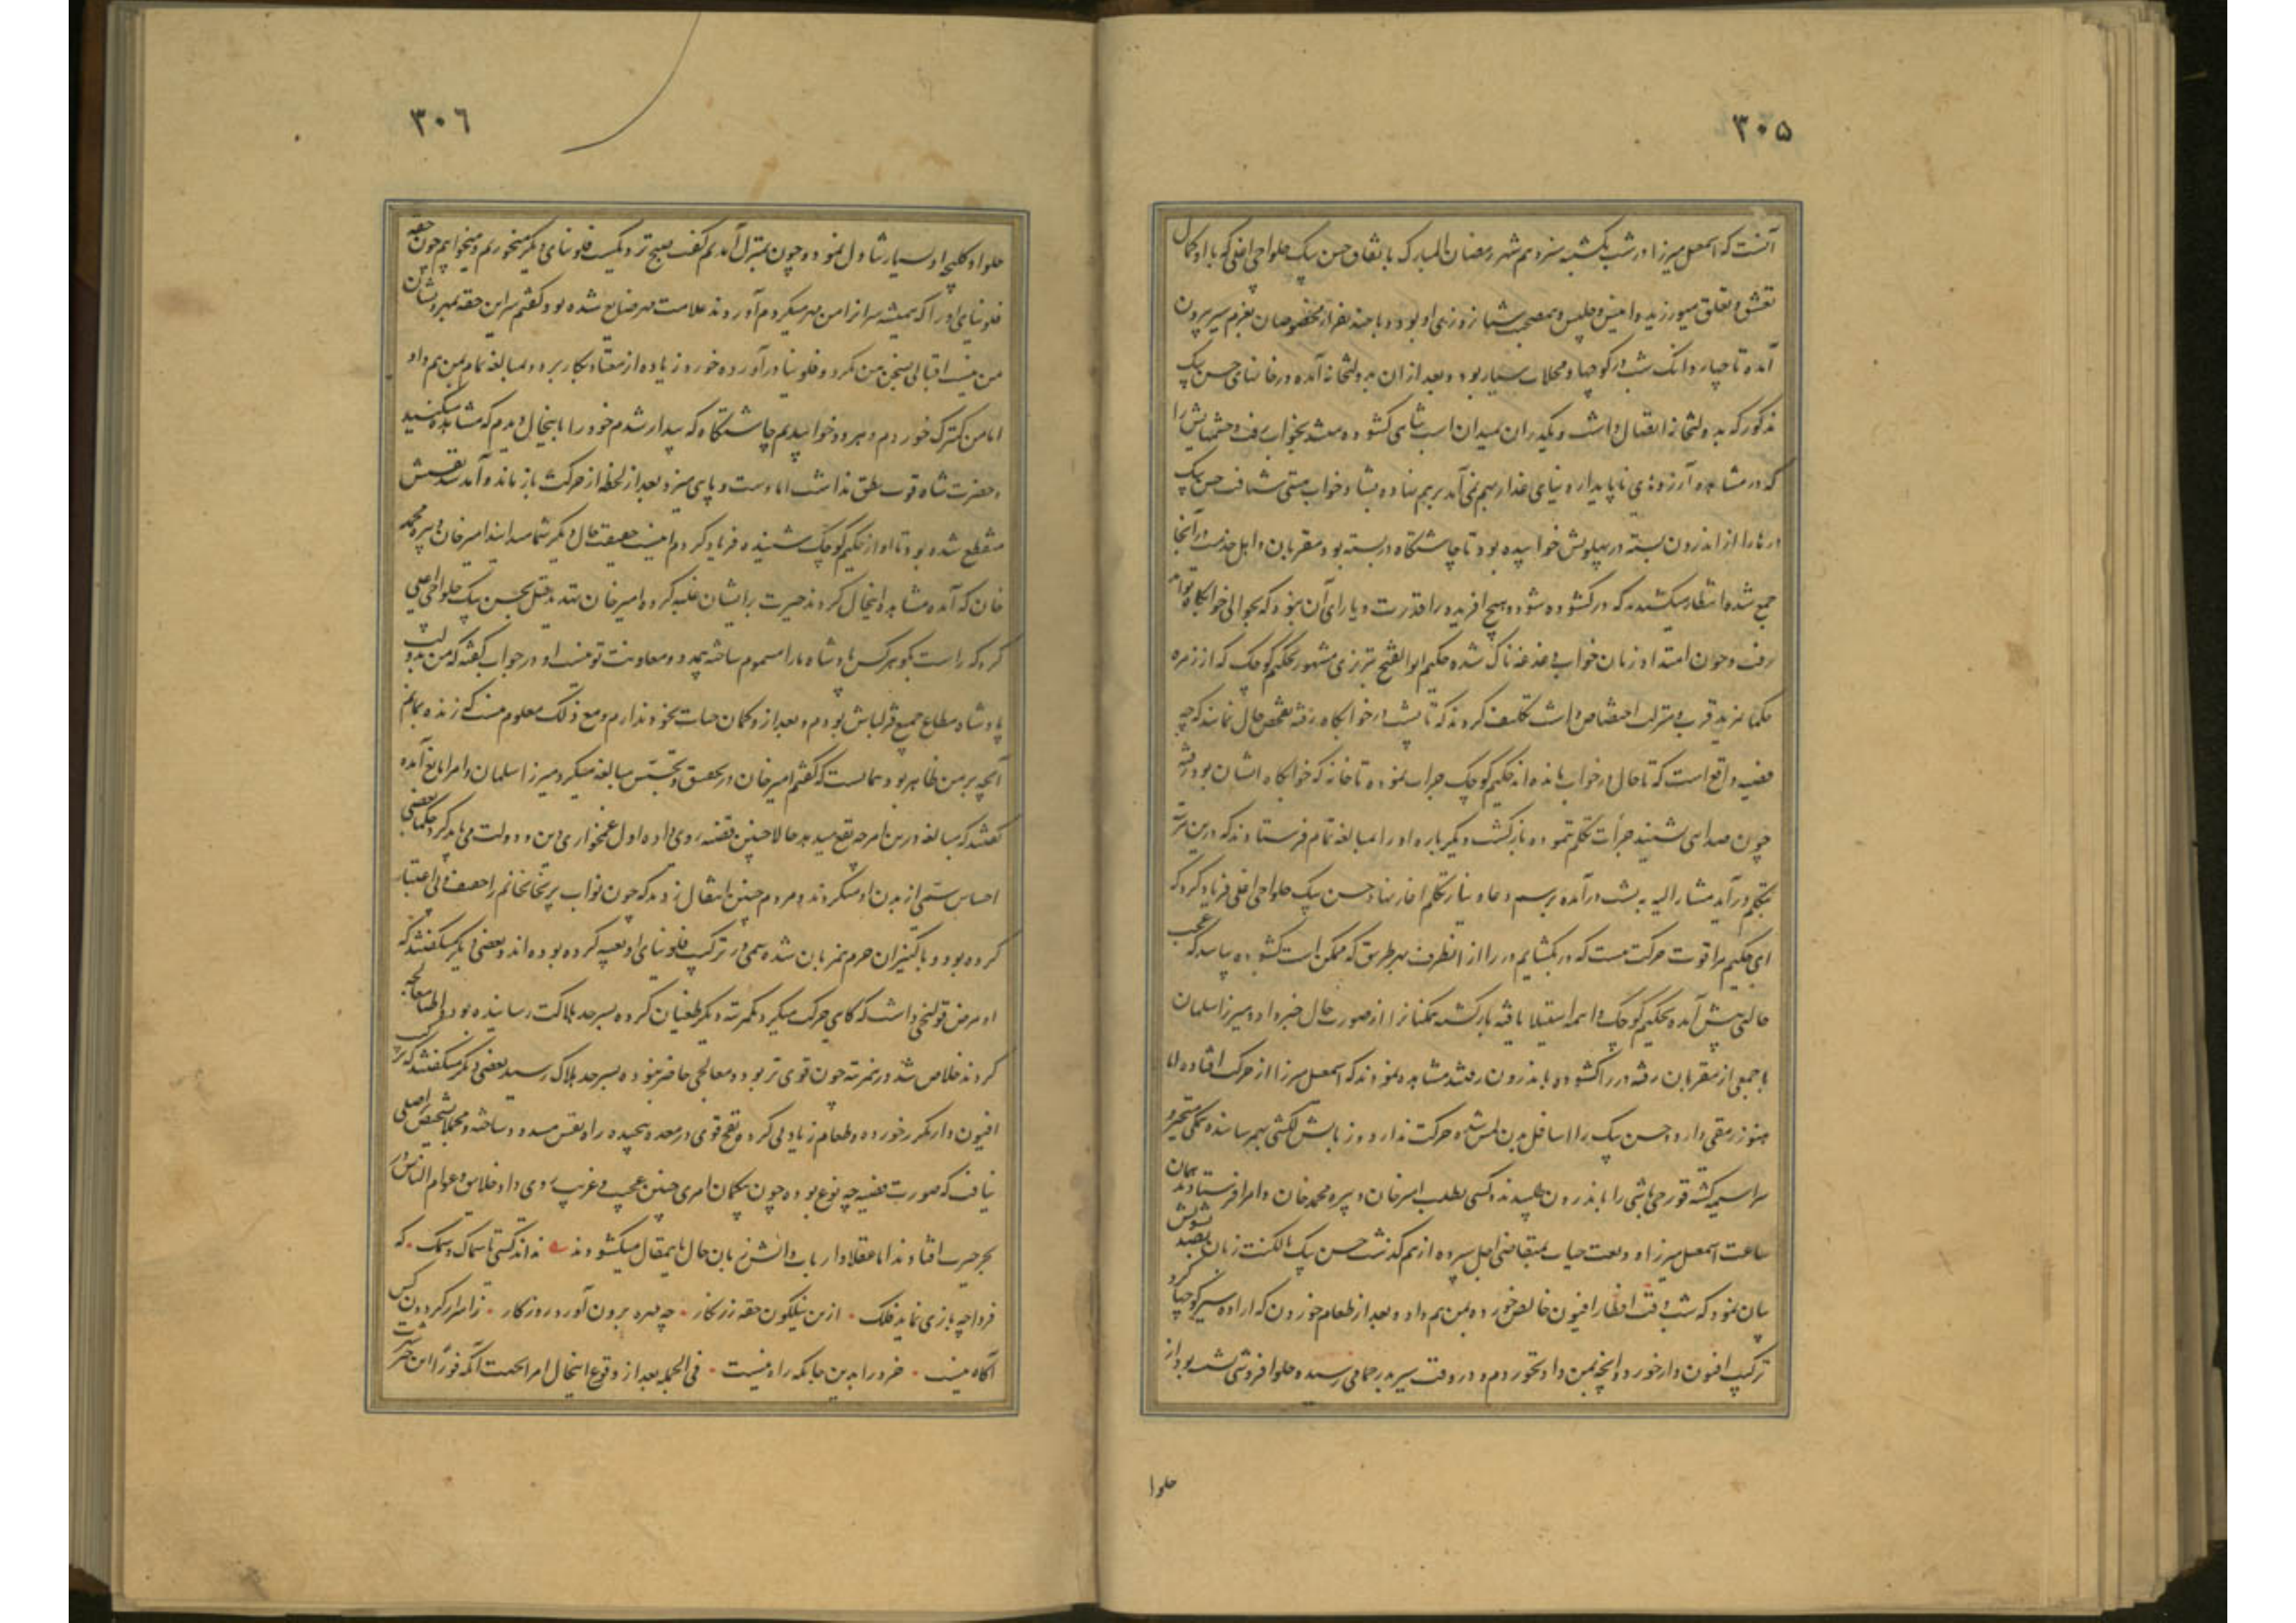 ۳۰۵
آنست که اسمعیل میرزا در شب یکشنبه سیزدهم شهر رمضان المبارک باتفاق حسن بیک حلواچی اغلی که با او کمال
تعشق و تعلق میورزیده و انیس و جلیس و مصاحب شبانروزی او بود و با چند نفر از مخصوصان بعزم سیر بیرون
آمده تا چهار دانک شب در کوچها و محلات سیار بود و بعد از آن بدولتخانه آمده در خانهای حسن بیک
مذکور که بدولتخانه اتصال داشت و یکدر آن بمیدان اسب شاهی کشوده میشد بخواب رفت و چشمهایش را
که در مشاهده آرزوهای ناپایدار دنیای غدار بهم نمی آمد برهم نهاده بشادخواب مستی شتافت حسن بیک
درها را از اندرون بسته در پهلویش خوابیده بود تا چاشتگاه در بسته بود مقربان و اهل خدمت در آنجا
جمع شده انتظار میکشیدند که در کشوده شود و هیچ آفریده را قدرت و یارای آن نبود که بحوالی خوابگاه تواند
رفت و چون امتداد زمان خواب دغدغه ناک شده حکیم ابوالفتح تبریزی مشهور بحکیم کوچک که از زمره
حکما بمزید قرب و منزلت اختصاص داشت تکلیف کردند که تا پشت در خوابگاه رفته تفحص حال نمایند که چه
قضیه واقع است که تا حال در خواب مانده اند حکیم کوچک جرات نموده تا خانه که خوابگاه ایشان بود رفته
چون صدای نشنید جرأت تکلم ننموده بازگشت دیگر باره او را بمبالغه تمام فرستادند که درین مرتبه
بتکلم درآید مشار الیه به پشت در آمده برسم دعا و نیاز تکلم اغاز نهاد حسن بیک حلواچی اغلی فریاد کرد که
ای حکیم مرا قوت حرکت نیست که در بکشایم در را از انطرف بهر طریق که ممکن است کشوده بیایید که عجب
حالتی پیش آمده بحکیم کوچک واهمه استیلا یافته بازگشته همکنانرا از صورت حال خبر داد و میرزا سلمان
با جمعی از مقربان رفته در را کشوده باندرون رفتند مشاهده نمودند که اسمعیل میرزا از حرکت افتاده اما
هنوز رمقی دارد و حسن بیک را اسافل بدن لمس شده حرکت ندارد و زبانش لکنتی بهم رسانیده همکی متحیر و
سراسیمه گشته قورچی باشی را باندرون طلبیدند و کسی بطلب امیرخان و پیره محمدخان و امرا فرستادند همان
ساعت اسمعیل میرزا ودیعت حیات بمتقاضی اجل سپرده از هم گذشت حسن بیک بالکنت زبان بصد تشویش
بیان نمود که شب وقت افطار افیون خالص خورده بمن هم داد و بعد از طعام خوردن که اراده سیر کوچها کرد
ترکیب افیون دار خورد و آنچه بمن داد نخوردم و در وقت سیر بدر حمامی رسیده حلوافروشی نشسته بود از
حلوا
۳۰۶
حلوا و کلیچه او بسیار تناول نمود و چون بمنزل آمدیم گفت صبح نزدیکست فلونیای دیگر میخوریم و میخوابیم چون حقه
فلونیای او را که همیشه سر آنرا من مهر میکردم آوردند علامت مهر ضایع شده بود گفتم سر این حقه بمهر و نشان
من نیست اقبالی بسخن من نکرد و فلونیا درآورده خورد و زیاده از معتاد بکار برد و بمبالغه تمام بمن هم داد
اما من کمترک خوردم و هر دو خوابیدیم چاشتگاه که بیدار شدم خود را باینحال دیدم که مشاهده میکنید
و حضرت شاه قوت نطق نداشت اما دست و پای میزد بعد از لحظه از حرکت باز ماند و آمد شد نفسش
منقطع شده بود تا آواز حکیم کوچک شنیده فریاد کردم اینست حقیقت حال دیگر شما میدانید امیرخان و پیره محمد
خان که آمده مشاهده اینحال کردند حیرت برایشان غلبه کرده امیرخان تهدید قتل بحسن بیک حلواچی اغلی
کرد که راست بگو هر کس پادشاه ما را مسموم ساخته بمدد و معاونت تو نیست او در جواب گفت که من بدولت
پادشاه مطاع جمیع قزلباش بودم و بعد از او گمان حیات بخود ندارم و مع ذلک معلوم نیست که زنده بمانم
آنچه بر من ظاهر بود همانست که گفتم امیرخان در تحقیق و تجسس مبالغه میکرد میرزا سلمان و امرا مانع آمده
گفتند که مبالغه درین امر چه نفع میدهد حالا چنین قضیه روی داده اول غمخواری دین و دولت می باید کرد حکما بعضی
احساس سمی از بدن او میکردند و مردم چنین انتقال زدند که چون نواب پریخان خانم را خفیف و بی اعتبار
کرده بود و با کنیزان حرم همزبان شده سمی در ترکیب فلونیای او تعبیه کرده بوده اند و بعضی دیگر میگفتند که
او مرض قولنجی داشت که گاهی حرکت میکرد یکمرتبه دیگر طغیان کرده بسرحد هلاکت رسانیده بود و اطبا معالجه
کردند خلاص شد درینمرتبه چون قوی تر بود و معالجی حاضر نبوده بسرحد هلاک رسید بعضی دیگر میگفتند که ترکیب
افیون دار مکرر خورده و طعام زیادتی کرد و نفخ قوی در معده پیچیده راه نفس مسدود ساخته و مجملا تشخیص اصلی
نیافت که صورت قضیه چه نوع بوده چون بیکمان امری چنین عجیب و غریب روی داد خلایق و عوام الناس در
بحر حیرت افتادند اما عقلا و ارباب دانش زبان حال باینمقال میکشودند نداند کسی تا سماک و سمک که
فردا چه بازی نماید فلک ازین نیلگون حقه زرنگار چه مهره برون آورد روزگار ز اسرار گردون کس
آگاه نیست خرد را بدین جایگه راه نیست فی الجمله بعد از وقوع اینحال امرا بجهت آنکه فورا این خبر شهرت